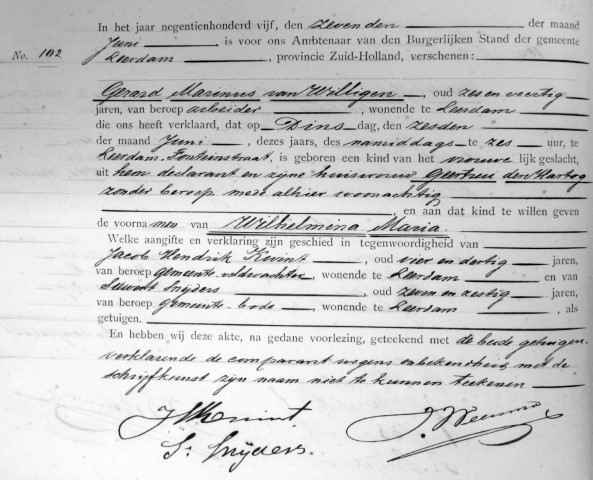 In het jaar negentienhonderd vijf, den zevenden der maand
Juni is voor ons Ambtenaar van den Burgerlijken Stand der gemeente
No. 102 Leerdam, provincie Zuid-Holland, verschenen:
Gerard Marinus van Willigen, oud zes en veertig
jaren, van beroep arbeider, wonende te Leerdam
die ons heeft verklaard, dat op Dins dag, den zesden
der maand Juni, dezes jaars, des namiddags te zes uur, te
Leerdam Fonteinstraat, is geboren een kind van het vrouwe lijk geslacht,
uit hem declarant en zijne huisvrouw Geertrui den Hartog
zonder beroep mede alhier woonachtig
, en aan dat kind te willen geven
de voorna men van Wilhelmina Maria.
Welke aangifte en verklaring zijn geschied in tegenwoordigheid van
Jacob Hendrik Kwint, oud vier en dertig jaren,
van beroep gemeente-veldwachter, wonende te Leerdam en van
Snijders, oud zeven en zestig jaren,
van beroep gemeente-bode, wonende te Leerdam, als
getuigen.
En hebben wij deze akte, na gedane voorlezing, geteekend met de beide getuigen,
verklarende de comparant wegens onbekendheid met de
schrijfkunst zijn naam niet te kunnen teekenen
JHKwint
S. Snijders.